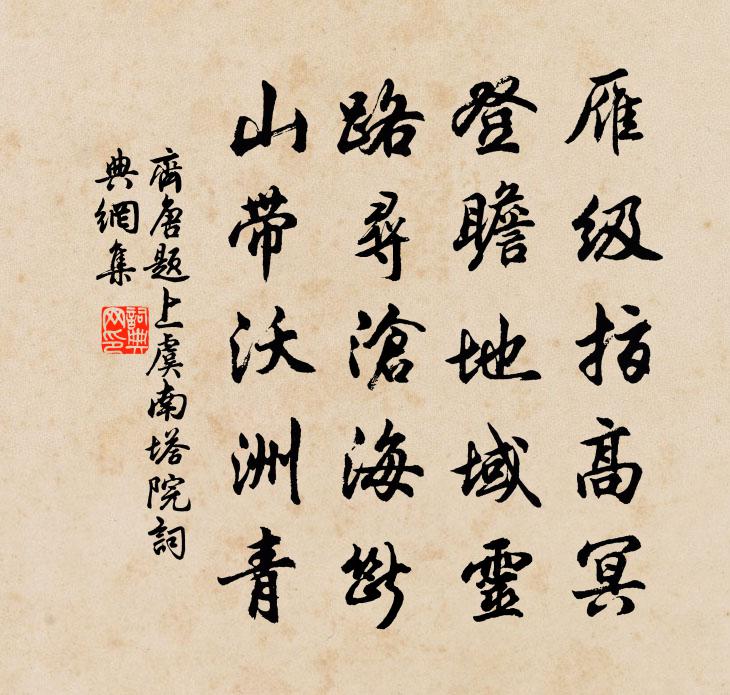 雁级指高冥
登瞻地域靈
路尋滄海斷
山带沃洲青
齊唐題上虞南塔院詞
典網集
詞典
网印